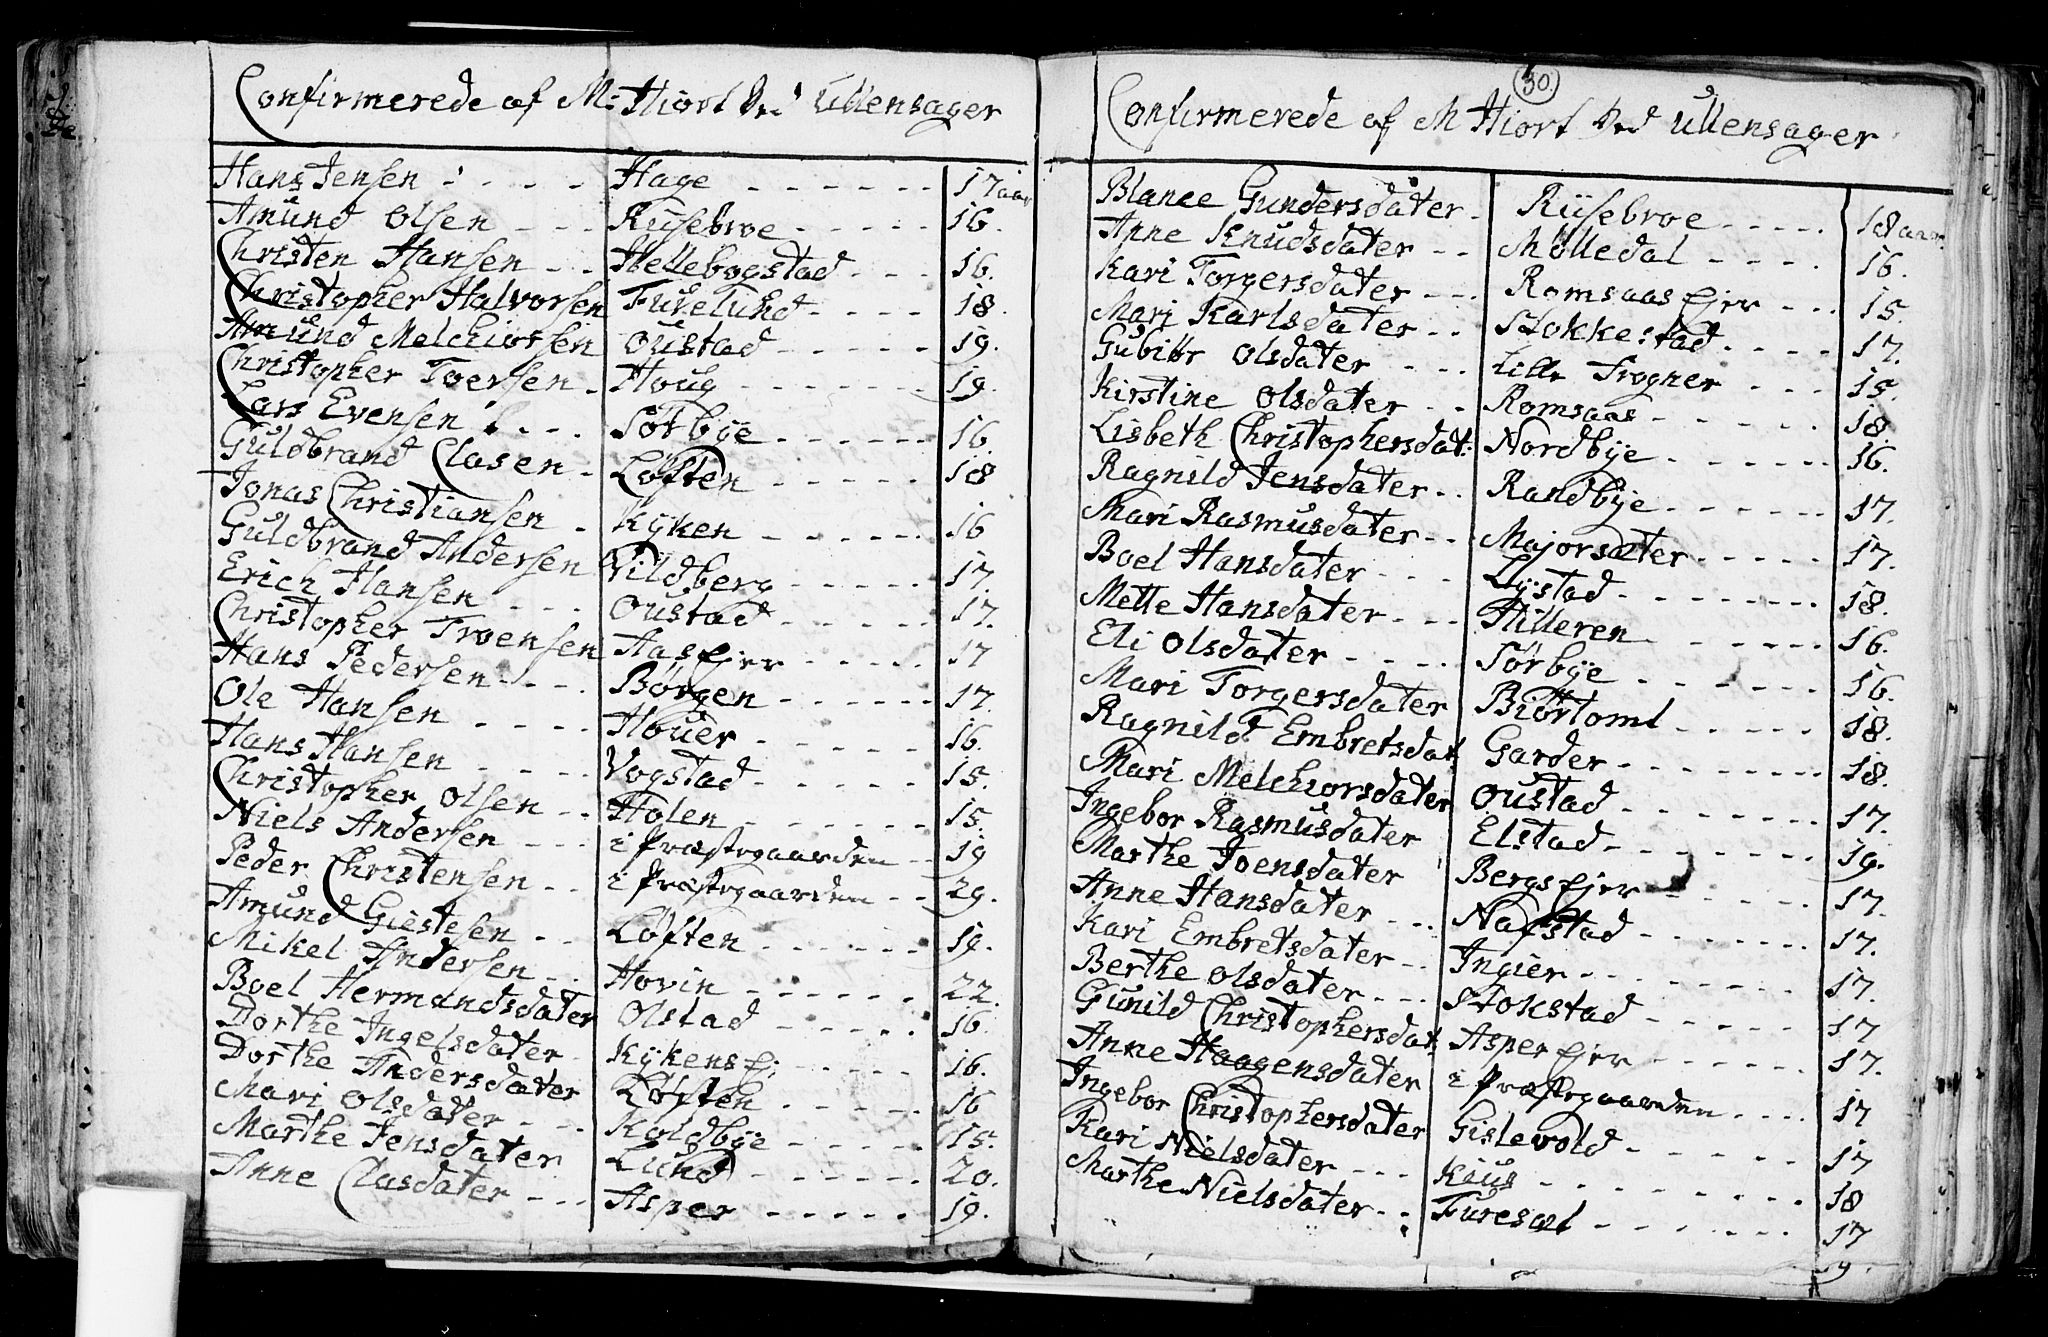 Confirmerede af M: Hiort Ved Ullensager
Hans Jensen - - - - Hage - - - - - - 17 aar
Amund Olsen - - - Riisebroe - - - - - 16.
Christen Hansen - - - Hellebogstad - - - 16.
Christopher Halvorsen Furelund - - - - 18.
Amund Melchiorsen Oustad - - - - - 19.
Christopher Toersen - Houg - - - - - - 19.
Lars Evensen - - - Sørbÿe - - - - - - 16.
Guldbrand Clasen - Løften - - - - - 18
Jonas Christiansen - Kÿken - - - - - 16
Guldbrand Andersen Vildberg - - - - - 17.
Erich Hansen - - - Oustad - - - - - 17.
Christopher Troensen Aas Ejer - - - - 17
Hans Pedersen - - - Børgen - - - - - - 17.
Ole Hansen - - - - Houer - - - - - - 16.
Hans Hansen - - - - Vogstad - - - - - 15.
Christopher Olsen - - Holen - - - - - - 15.
Niels Andersen - - - i Præstegaarden - - 19
Peder Christensen - - i Præstegaarden - - 29.
Amund Giestesen - - Løften - - - - - 19.
Mikel Andersen - - Hovin - - - - - - 22.
Boel Hermandsdater Olstad - - - - - 16.
Dorthe Ingelsdater - Kÿkens Ej: - - - - 16.
Dorthe Andersdater Løften - - - - - 16
Mari Olsdater - - - Koldbÿe - - - - - 15.
Marthe Jensdater Lund - - - - - - 20.
Anne Clasdater - - - Asper - - - - - 19.
30.
Confirmerede af M Hiort Ved Ullensager
Blance Gundersdater - Riisebroe - - - - - 18 aar.
Anne Knudsdater - - Mølledal - - - - 16.
Kari Torgersdater - - - Romsaas Ejer - - - 15.
Mari Karlsdater - - Stokkestad - - - - 17.
Gubiør Olsdater - - - Lille Frogner - - - 15.
Kirstine Olsdater - - Romsaas - - - - - - 18
Lisbeth Christophersdat: Nordbÿe - - - - - - 16.
Ragnild Jensdater - - Randbÿe - - - - - - 17.
Mari Rasmusdater - - Majorsæter - - - - - 17.
Boel Hansdater - - - - Lÿstad - - - - - - - 18.
Mette Hansdater - - - Hilleren - - - - - - 16.
Eli Olsdater - - - - Sørbÿe - - - - - - 16.
Mari Torgersdater Biørtomt - - - - - - 18.
Ragnild Embretsdat Garder - - - - - - - 18.
Mari Melchiorsdater Oustad - - - - - - - 17.
Ingebor Rasmusdater Elstad - - - - - - - 19.
Marthe Joensdater Bergs Ejer - - - - - 17.
Anne Hansdater - - - Nafstad - - - - - - 17.
Kari Embretsdater - - Ingier - - - - - - - 17.
Berthe Olsdater - - - Stokstad - - - - - 17
Gunild Christophersdat. Asper Ejer - - - - 17.
Anne Haagensdater i Præstegaarden - - - - 17
Ingebor Christophersdater Gislevold - - - - - - 17
Kari Nielsdater - - - Kius - - - - - - - - 18
Marthe Nielsdater - - Furesæt - - - - - - 17